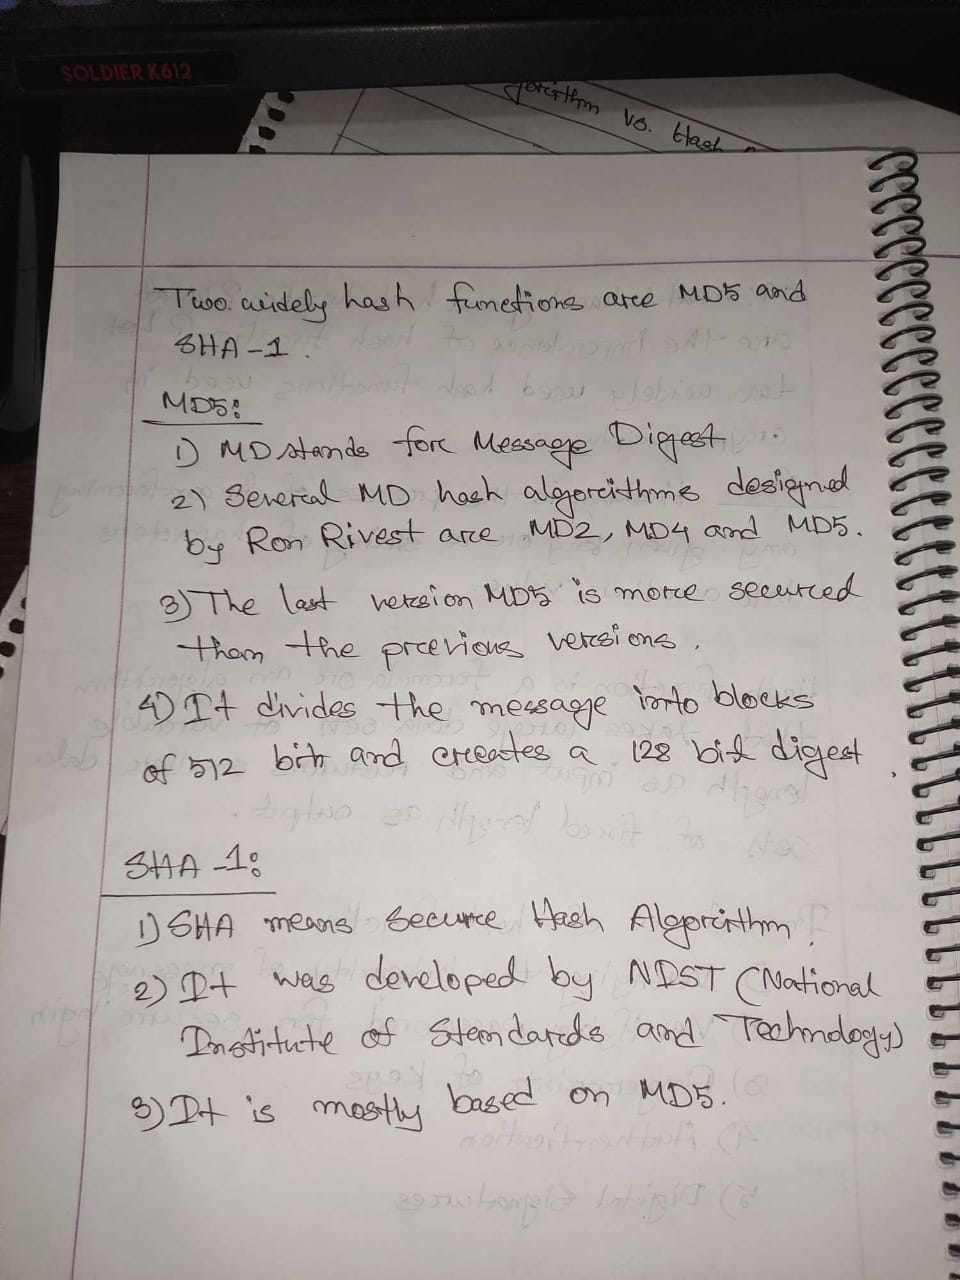 SOLDIER K612
gorithm vs. Hash
Two widely hash functions are MD5 and
SHA-1.
MD5:
1) MD stands for Message Digest.
2) Several MD hash algorithms designed
by Ron Rivest are MD2, MD4 and MD5.
3) The last version MD5 is more secured
than the previous versions.
4) It divides the message into blocks
of 512 bit and creates a 128 bit digest.
SHA-1:
1) SHA means Secure Hash Algorithm.
2) It was developed by NIST (National
Institute of Standards and Technology)
3) It is mostly based on MD5.